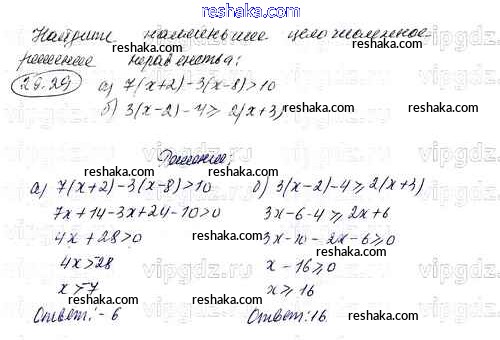 www.reshaka.com
Найдите наименьшее целочисленное
решение неравенства:
29.29 а) 7(x+2)-3(x-8)>10
reshaka.com
б) 3(x-2)-4⩾2(x+3)
vipgdz.ru
Решение:
reshaka.com
а) 7(x+2)-3(x-8)>10 б) 3(x-2)-4⩾2(x+3)
reshaka.com reshaka.com
7x+14-3x+24-10>0 3x-6-4⩾2x+6
reshaka.com reshaka.com
4x+28>0 3x-10-2x-6⩾0
reshaka.com reshaka.com
4x>28 x-16⩾0
reshaka.com reshaka.com
x>7 x⩾16
reshaka.com reshaka.com
Ответ: -6 Ответ: 16.